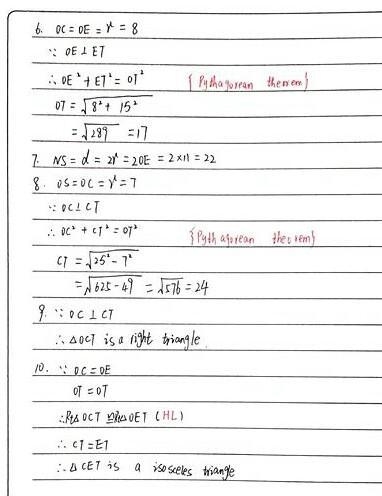 6. OC = OE = r = 8
∵ OE⊥ET
∴ OE² + ET² = OT² {Pythagorean theorem}
OT = √8² + 15²
= √289 = 17
7. NS = d = 2r = 2OE = 2×11 = 22
8. OS = OC = r = 7
∵ OC⊥CT
∴ OC² + CT² = OT² {Pythagorean theorem}
CT = √25² - 7²
= √625-49 = √576 = 24
9. ∵ OC ⊥ CT
∴ △OCT is a right triangle.
10. ∵ OC = OE
OT = OT
∴ Rt△ OCT ≌ Rt△ OET (HL)
∴ CT = ET
∴ △ CET is a isosceles triangle